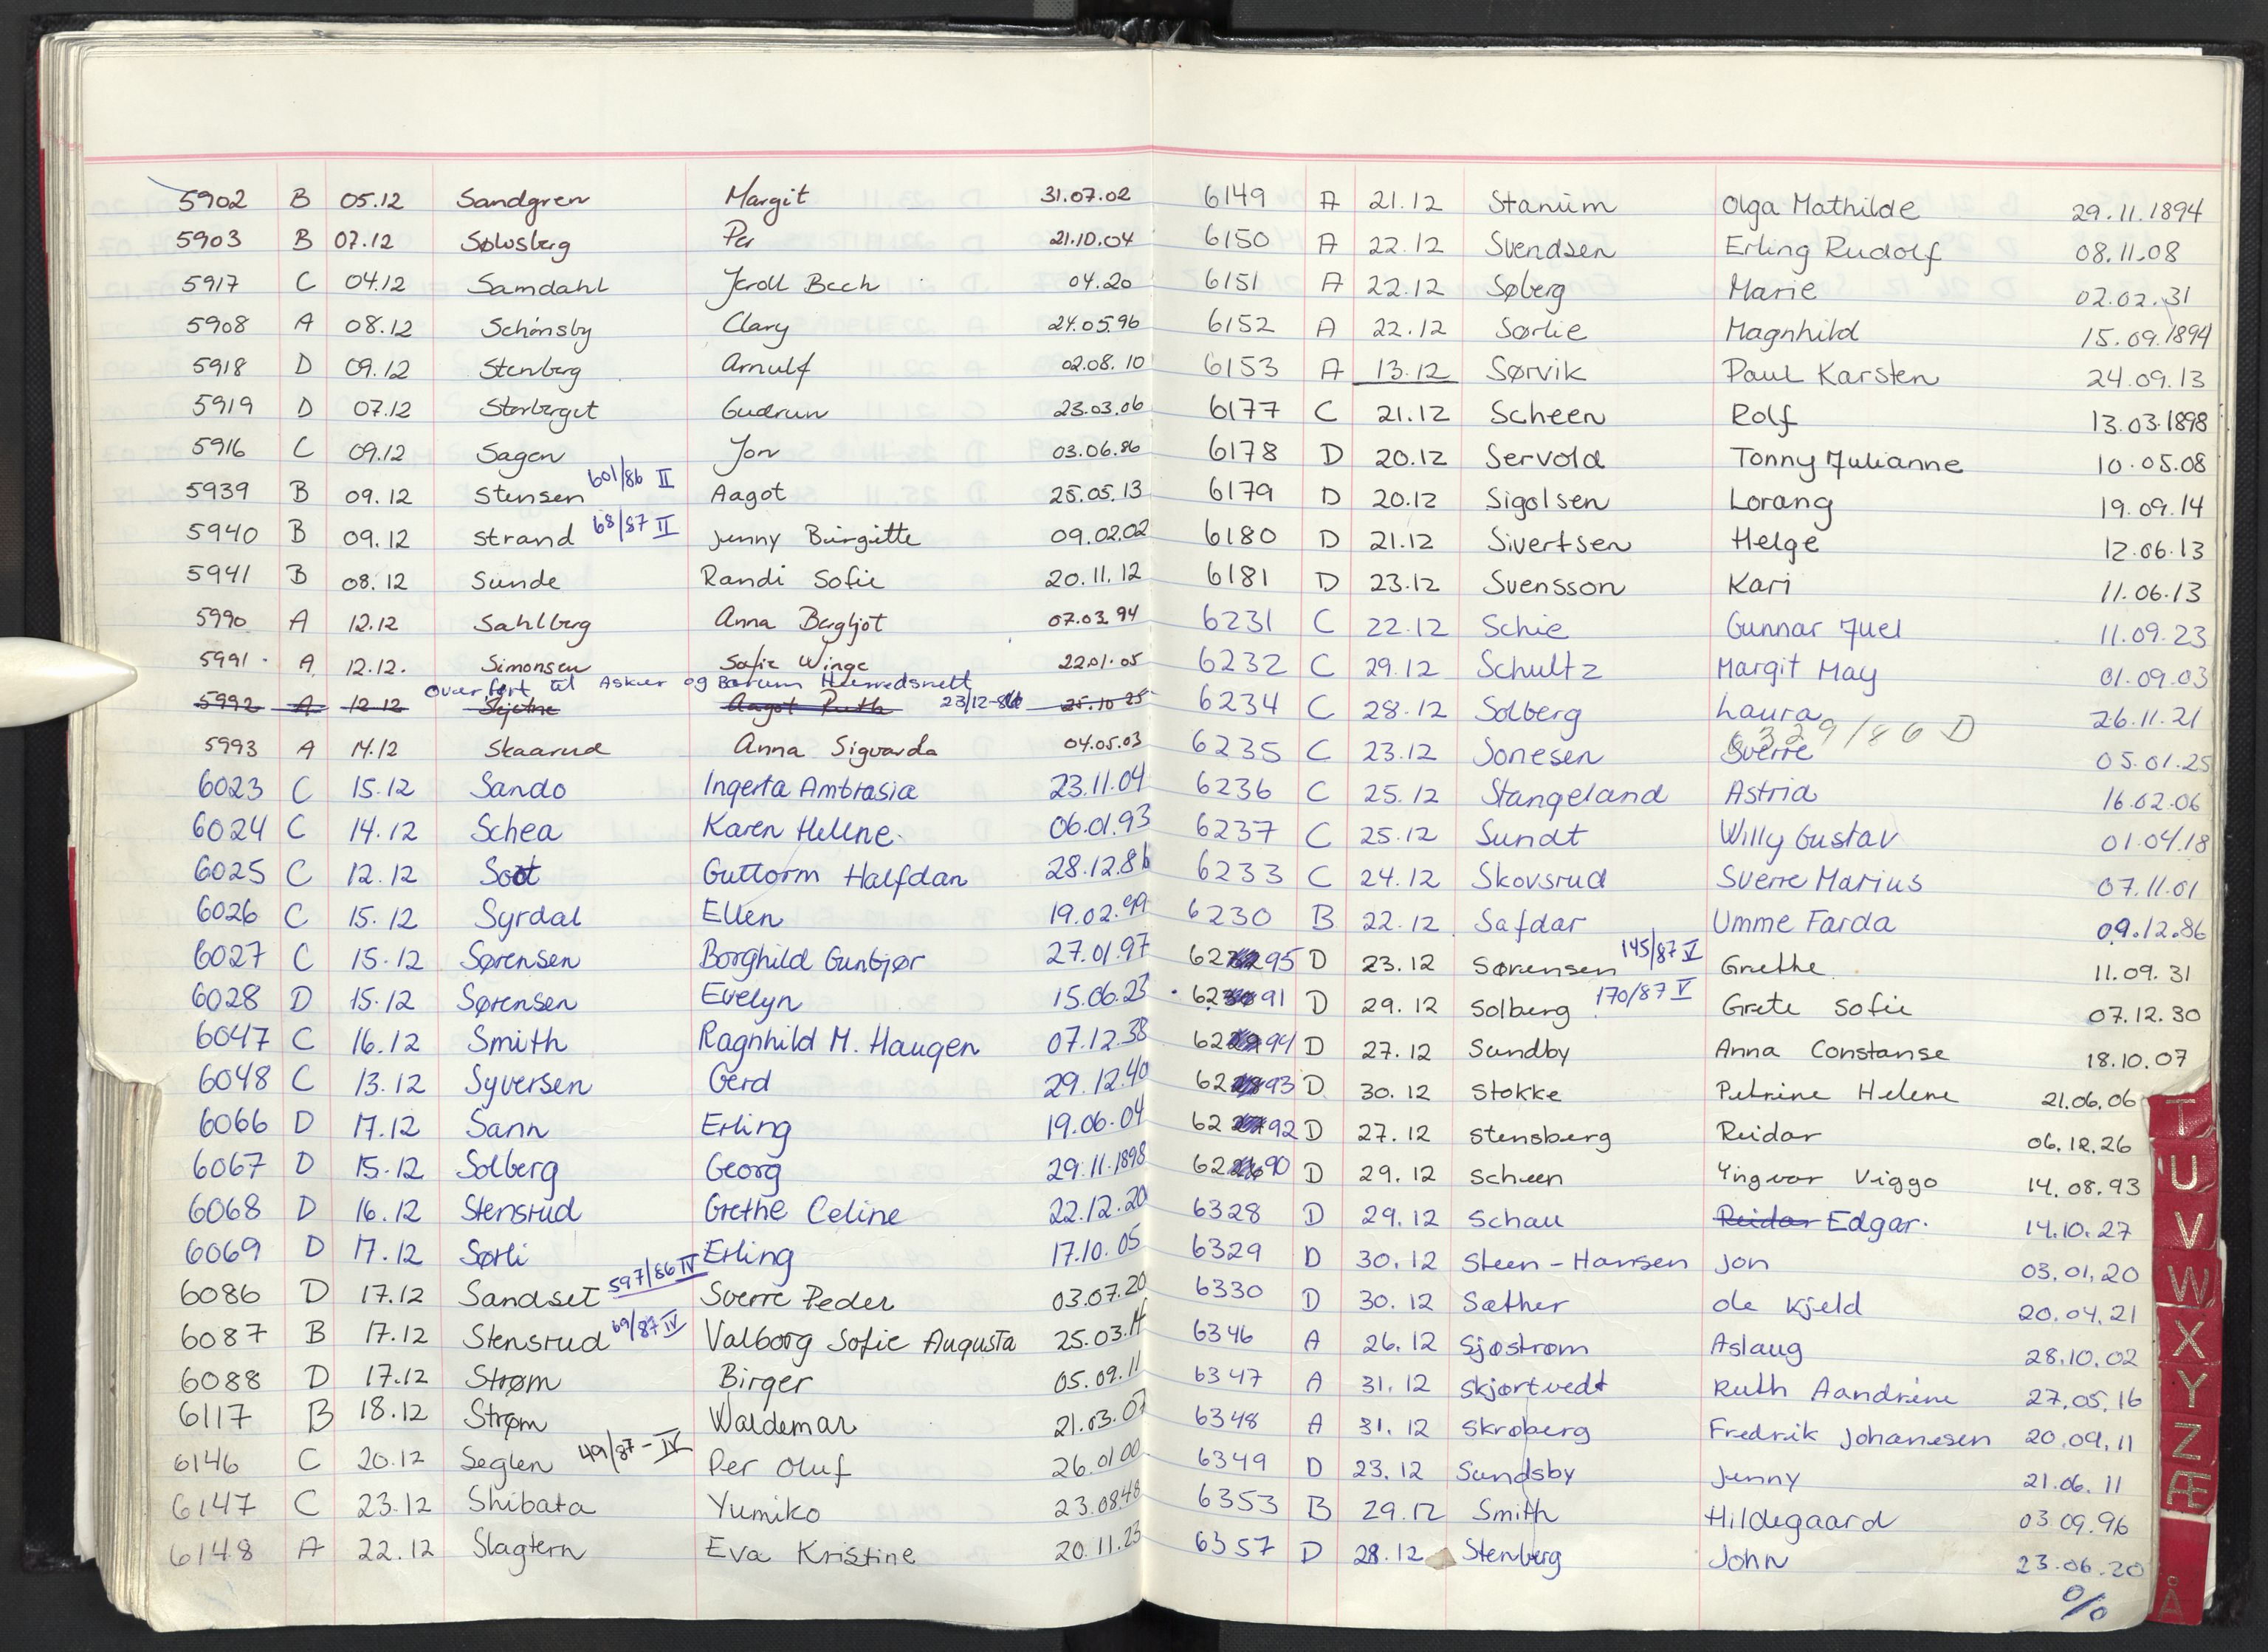 5902 B 05.12 Sandgren Margit 31.07.02
5903 B 07.12 Sølvsberg Per 21.10.04
5917 C 04.12 Samdahl Jeroll Bech 04.20
5908 A 08.12 Schønsby Clary 24.05.96
5918 D 09.12 Stenberg Arnulf 02.08.10
5919 D 07.12 Storberget Gudrun 23.03.06
5916 C 09.12 Sagen Jon 03.06.86
5939 B 09.12 Stensen 601/86 II Aagot 25.05.13
5940 B 09.12 Strand 68/87 II Jenny Birgitte 09.02.02
5941 B 08.12 Sunde Randi Sofie 20.11.12
5990 A 12.12 Sahlberg Anna Bergljot 07.03.94
5991 A 12.12. Simonsen Sofie Winge 22.01.05
Overført til Asker og Bærum Herredsrett
5992 A 12.12 Aagot Ruth 23/12-86 25.10 25
5993 A 14.12 Skaarud Anna Sigvarda 04.05.03
6023 C 15.12 Sando Ingerta Ambrasia 23.11.04
6024 C 14.12 Schea Karen Helene 06.01.93
6025 C 12.12 Soot Guttorm Halfdan 28.12.86
6026 C 15.12 Syrdal Ellen 19.02.99
6027 C 15.12 Sørensen Borghild Gunbjør 27.01.97
6028 D 15.12 Sørensen Evelyn 15.06.23
6047 C 16.12 Smith Ragnhild M. Haugen 07.12.38
6048 C 13.12 Syversen Gerd 29.12.40
6066 D 17.12 Sann Erling 19.06.04
6067 D 15.12 Solberg Georg 29.11.1898
6068 D 16.12 Stensrud Grethe Celine 22.12.20
6069 D 17.12 Sørli Erling 17.10.05
6086 D 17.12 Sandset 597/86 IV Sverre Peder 03.07.20
6087 B 17.12 Stensrud 69/87 IV Valborg Sofie Augusta 25.03.14
6088 D 17.12 Strøm Birger 05.09.11
6117 B 18.12 Strøm Waldemar 21.03.07
6146 C 20.12 Seglen 49/87-IV Per Oluf 26.01.00
6147 C 23.12 Shibata Yumiko 23.08.48
6148 A 22.12 Slagtern Eva Kristine 20.11.23
6149 A 21.12 Stanum Olga Mathilde 29.11.1894
6150 A 22.12 Svendsen Erling Rudolf 08.11.08
6151 A 22.12 Søberg Marie 02.02.31
6152 A 22.12 Sørlie Magnhild 15.09.1894
6153 A 13.12 Sørvik Paul Karsten 24.09.13
6177 C 21.12 Scheen Rolf 13.03.1898
6178 D 20.12 Servold Tonny Julianne 10.05.08
6179 D 20.12 Sigolsen Lorang 19.09.14
6180 D 21.12 Sivertsen Helge 12.06.13
6181 D 23.12 Svensson Kari 11.06.13
6231 C 22.12 Schie Gunnar Juel 11.09.23
6232 C 29.12 Schultz Margit May 01.09.03
6234 C 28.12 Solberg Laura 26.11.21
6329/86 D
6235 C 23.12 Sonesen Sverre 05.01.25
6236 C 25.12 Stangeland Astrid 16.02.06
6237 C 25.12 Sundt Willy Gustav 01.04.18
6233 C 24.12 Skovsrud Sverre Marius 07.11.01
6230 B 22.12 Safdar Umme Farda 09.12.86
6295 D 23.12 Sørensen 145/87 V Grethe 11.09.31
6291 D 29.12 Solberg 170/87 V Grete Sofie 07.12.30
6294 D 27.12 Sundby Anna Constanse 18.10.07
6293 D 30.12 Stokke Petrine Helene 21.06.06
6292 D 27.12 Stensberg Reidar 06.12.26
6290 D 29.12 Scheen Yngvar Viggo 14.08.93
6328 D 29.12 Schau Reidar Edgar. 14.10.27
6329 D 30.12 Steen-Hansen Jon 03.01.20
6330 D 30.12 Sæther Ole Kjeld 20.04.21
6346 A 26.12 Sjøstrøm Aslaug 28.10.02
6347 A 31.12 Skjørtvedt Ruth Aandrine 27.05.16
6348 A 31.12 Skrøberg Fredrik Johanesen 20.09.11
6349 D 23.12 Sundsby Jenny 21.06.11
6353 B 29.12 Smith Hildegaard 03.09.96
6357 D 28.12 Stenberg John 23.06.20
%
T
U
V
W
X
Y
Z
Æ
Å